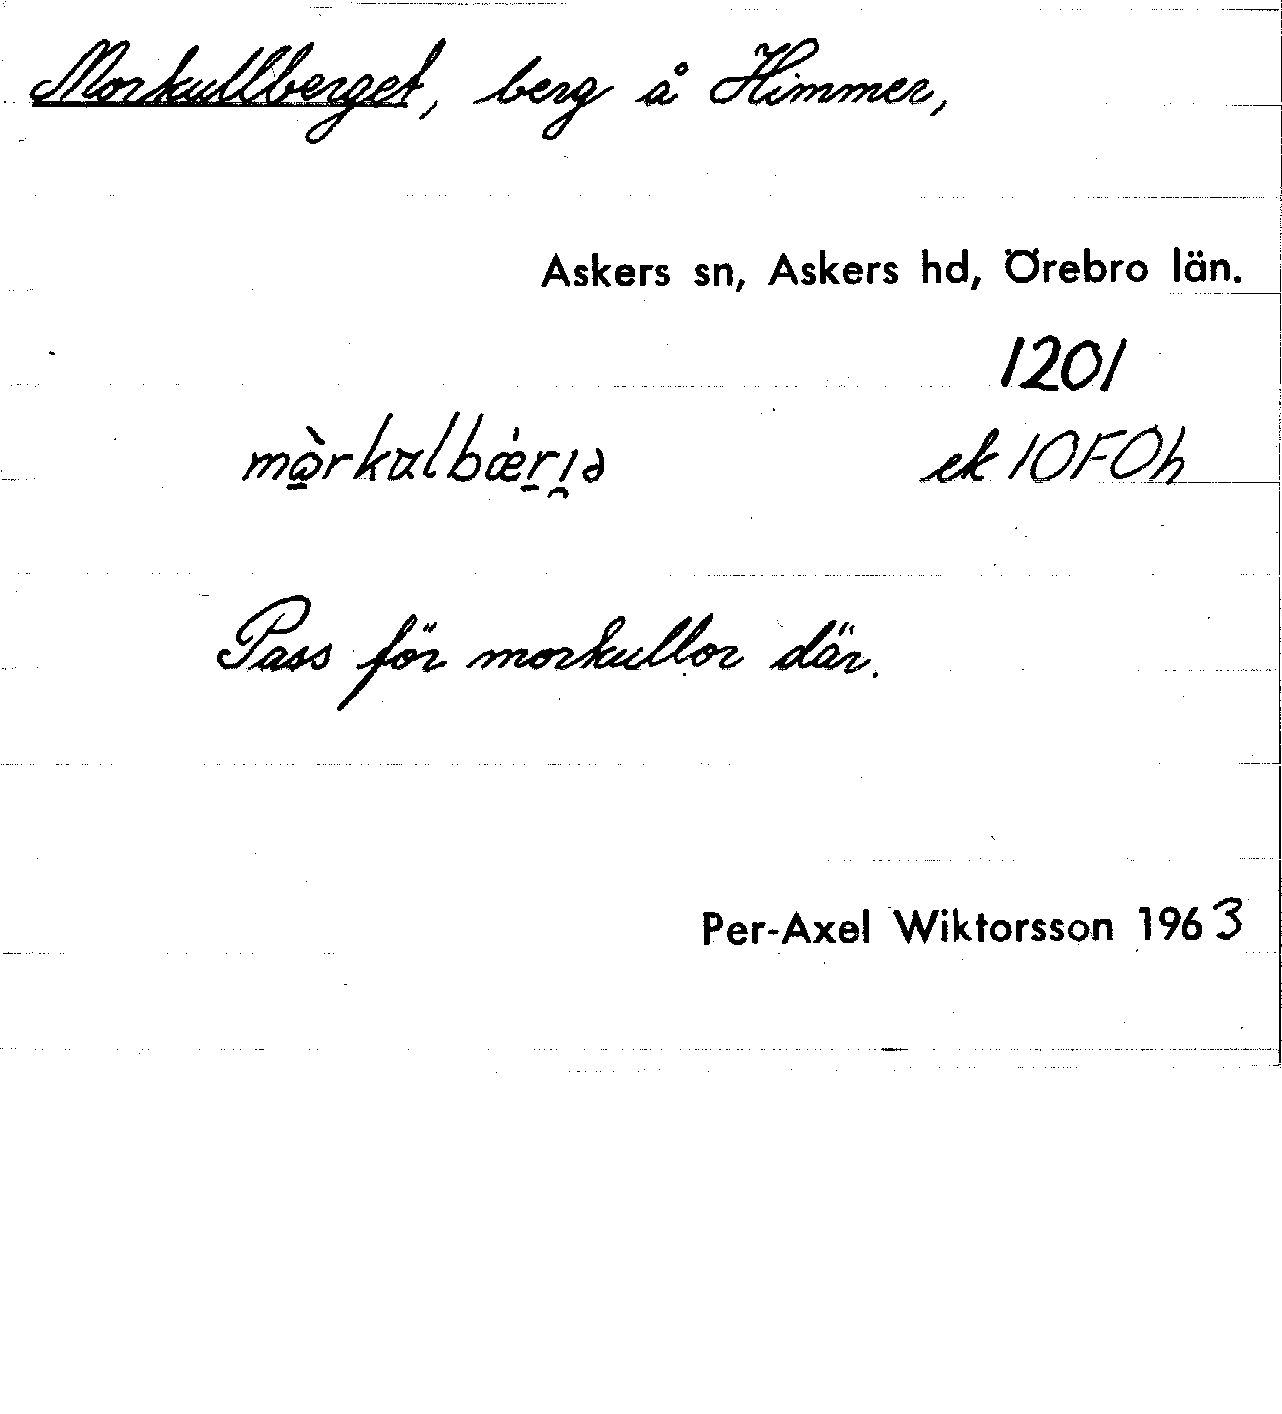 Morkullberget, berg å Himmer,
Askers sn, Askers hd, Örebro län.
1201
ek 10F0h
Pass för morkullor där.
Per-Axel Wiktorsson 1963